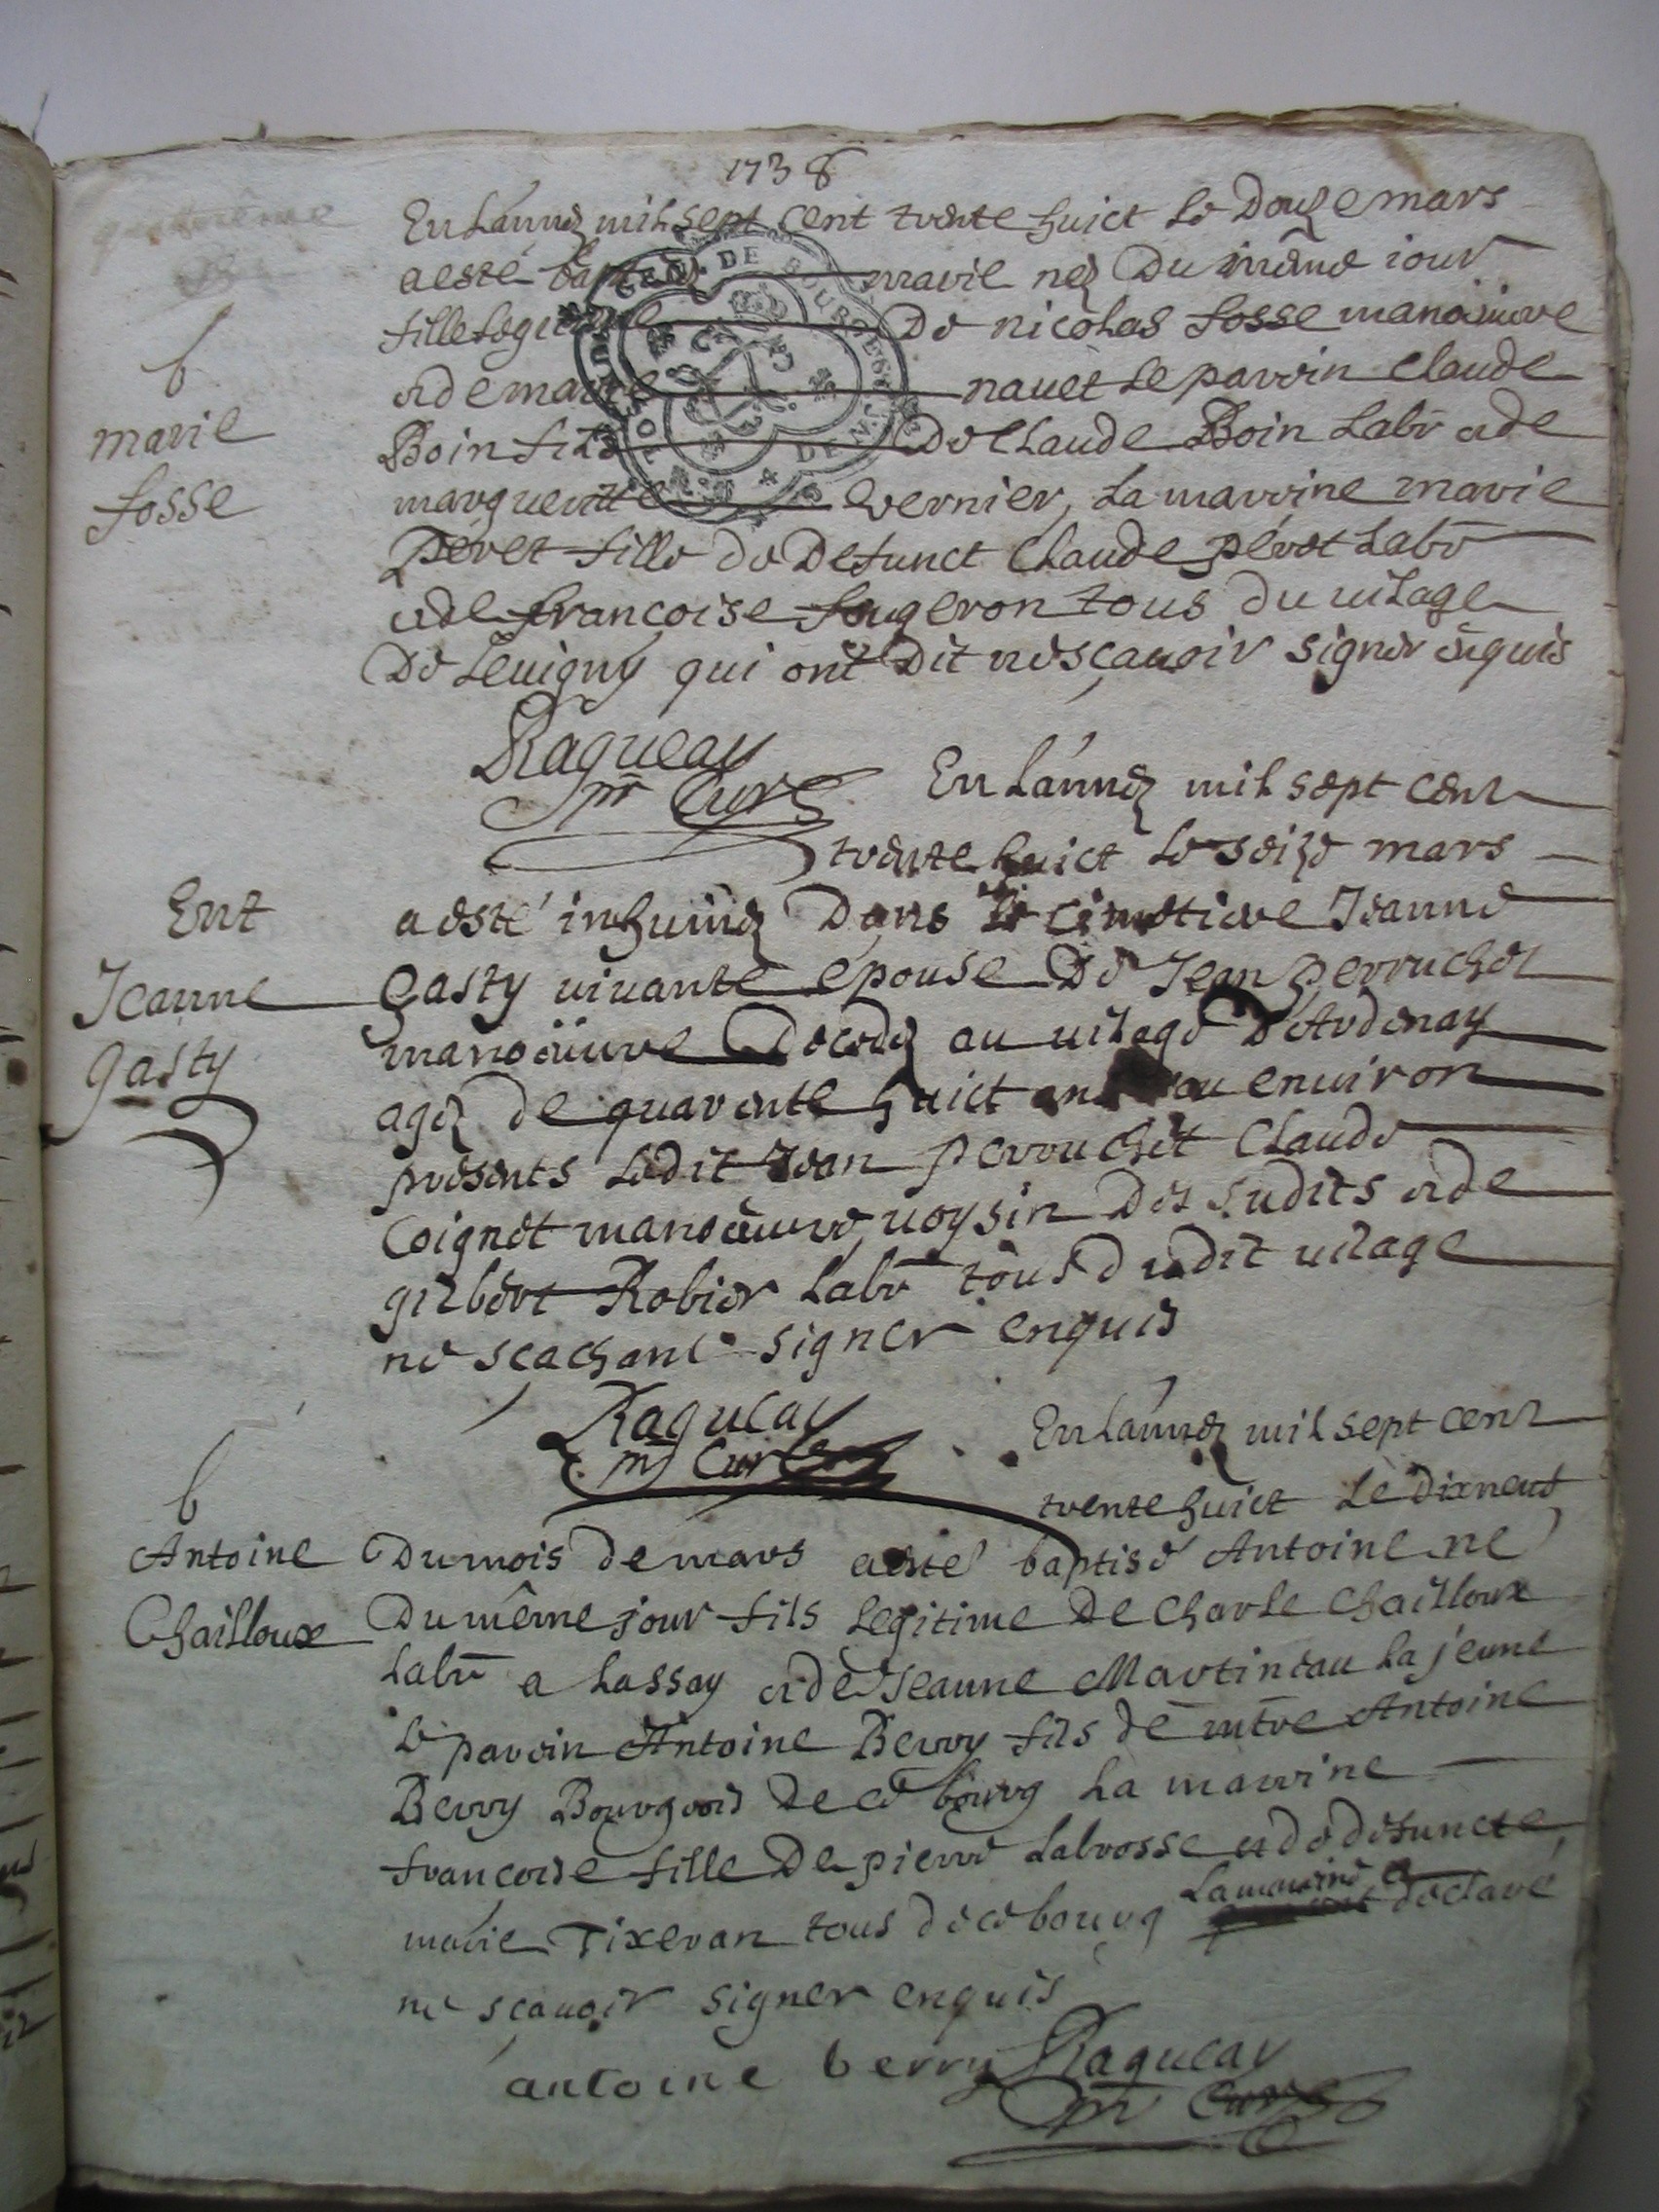 1738
quattrieme
En Lannee mil sept cent trente huict Le Douze mars
a esté baptisée marie neë Du même iour
b
fille Legitime De nicolas fosse manoeuure
marie
& de marie nauet Le parrin Claude
fosse
Boin fils De Claude Boin Labr & de
margueritte Vernier, La marrine marie
Péret fille de Defunct Claude péret Labr
& de francoise fougeron tous du uilage
De Leuigny qui ont Dit ne sçauoir signer êquis
Ragueau
pr Curé
En Lannée mil sept cent
trente huict Le seize mars
Ent
a esté inhumée Dans Le Cimetiere Jeanne
Jeanne
Gasty uiuante épouse De Jean perruchet
gasty
manoeuure Decedeé au uilage D'Ardenay
ageé de quarente huict ans ou enuiron
presents Ledit Jean perruchet Claude
Coignet manoeuure uoysin Des sudits & de
gilbert Robier Labr tous dudit uilage
ne scachant signer enquis
Ragueau
pr Curé
En Lannée mil sept cent
trente huict Le dixneuf
b
Antoine
Du mois de mars a esté baptisé Antoine né
Chailloux
Du même jour fils Legitime De Charle Chailloux
Labr a Lassay & de Jeanne Martineau La jeune
Le parrin Antoine Berry fils de mtre Antoine
Berry Bourgeois De ce bourg La marrine
francoise fille De pierre Labrosse & de defuncte
marie Tixeran tous de ce bourg La marrine a declaré
ne scauoir signer enquis
antoine berry Ragueau
pr Curé